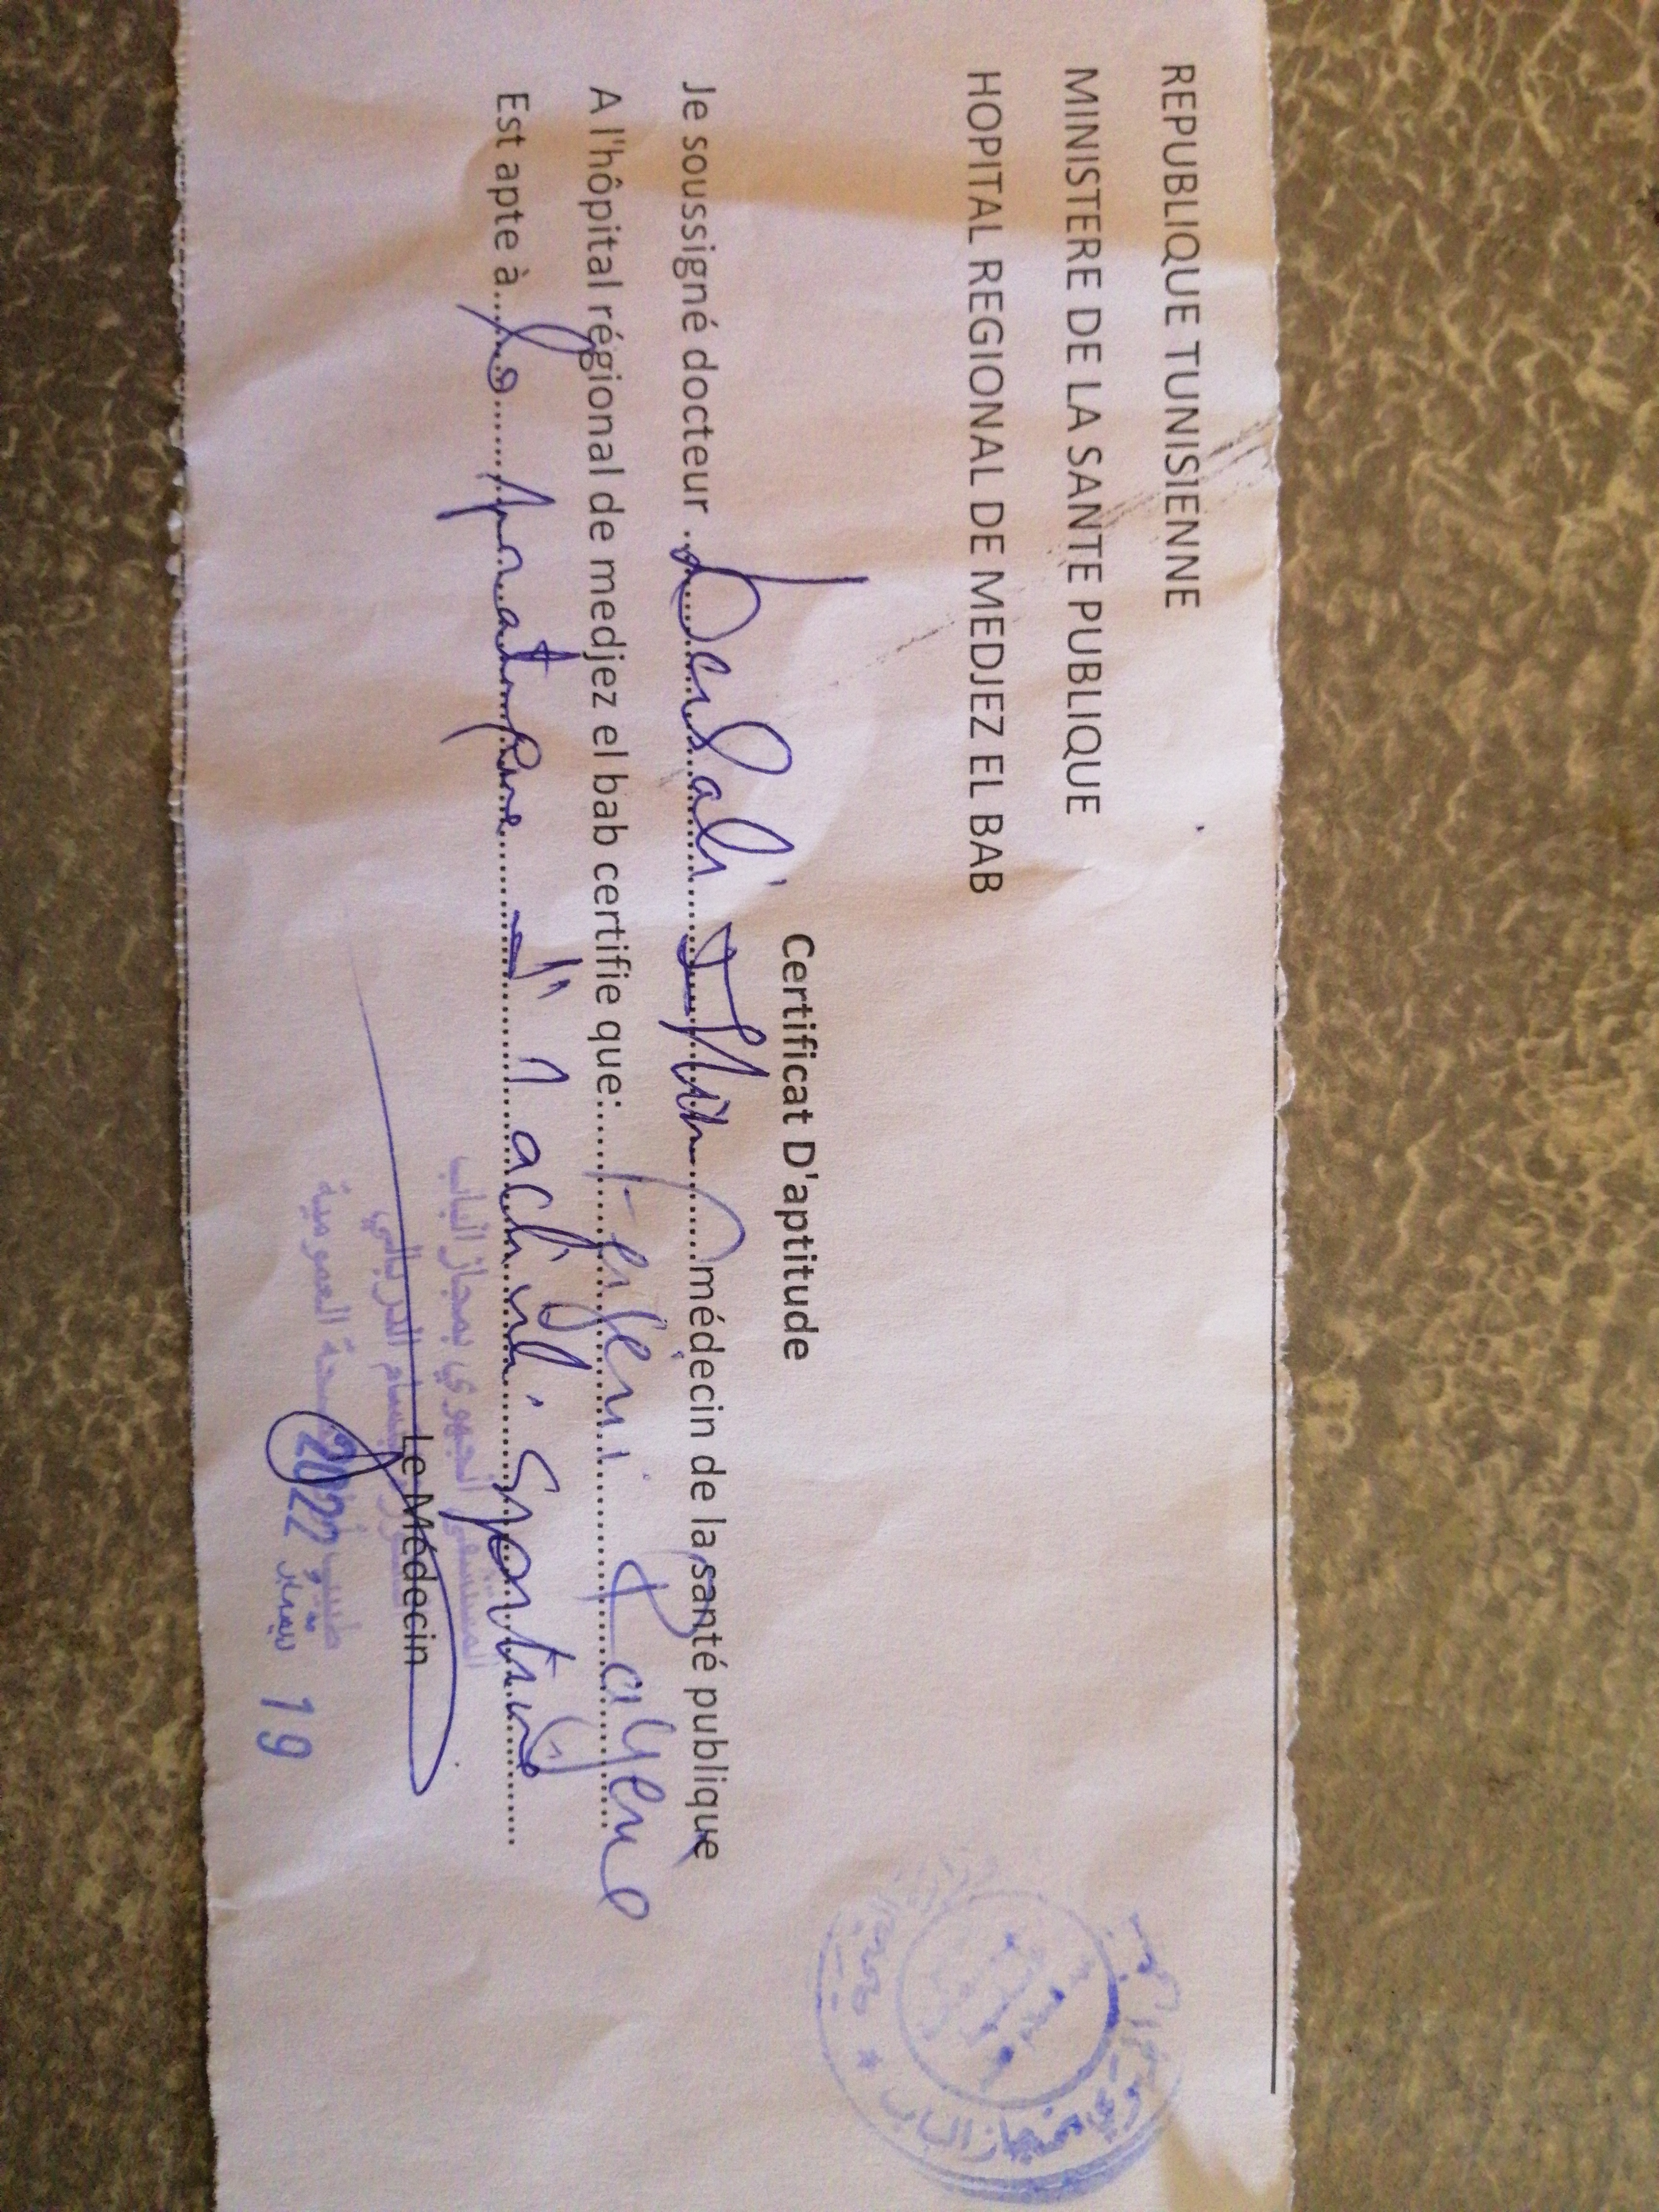 REPUBLIQUE TUNISIENNE
MINISTERE DE LA SANTE PUBLIQUE
HOPITAL REGIONAL DE MEDJEZ EL BAB
Certificat D'aptitude
Je soussigné docteur ............médecin de la santé publique
A l'hôpital régional de medjez el bab certifie que:............
Est apte à... la pratique d' l'activité sportive
Le Médecin
المستشفى الجهوي بمجاز الباب
الصحة العمومية
19 سبتمبر 2022